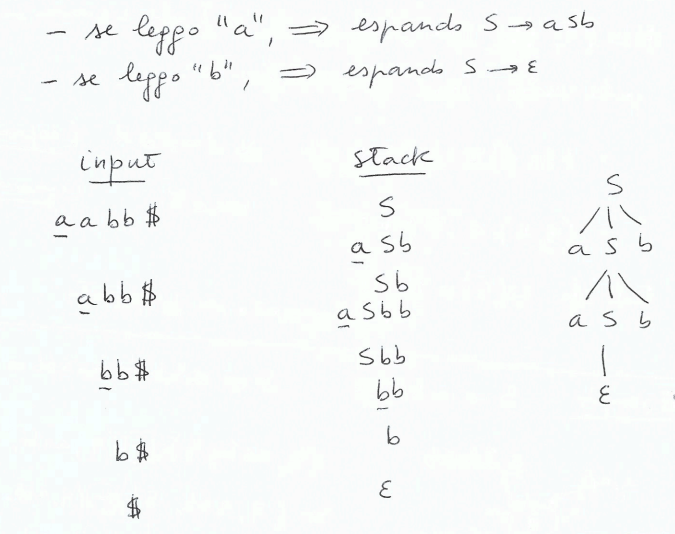 - se leggo "a", ⇒ espando S → aSb
- se leggo "b", ⇒ espando S → ε
input stack
S
aabb$ S
aSb a S b
Sb
abb$ aSbb a S b
Sbb
bb$ bb ε
b$ b
$ ε